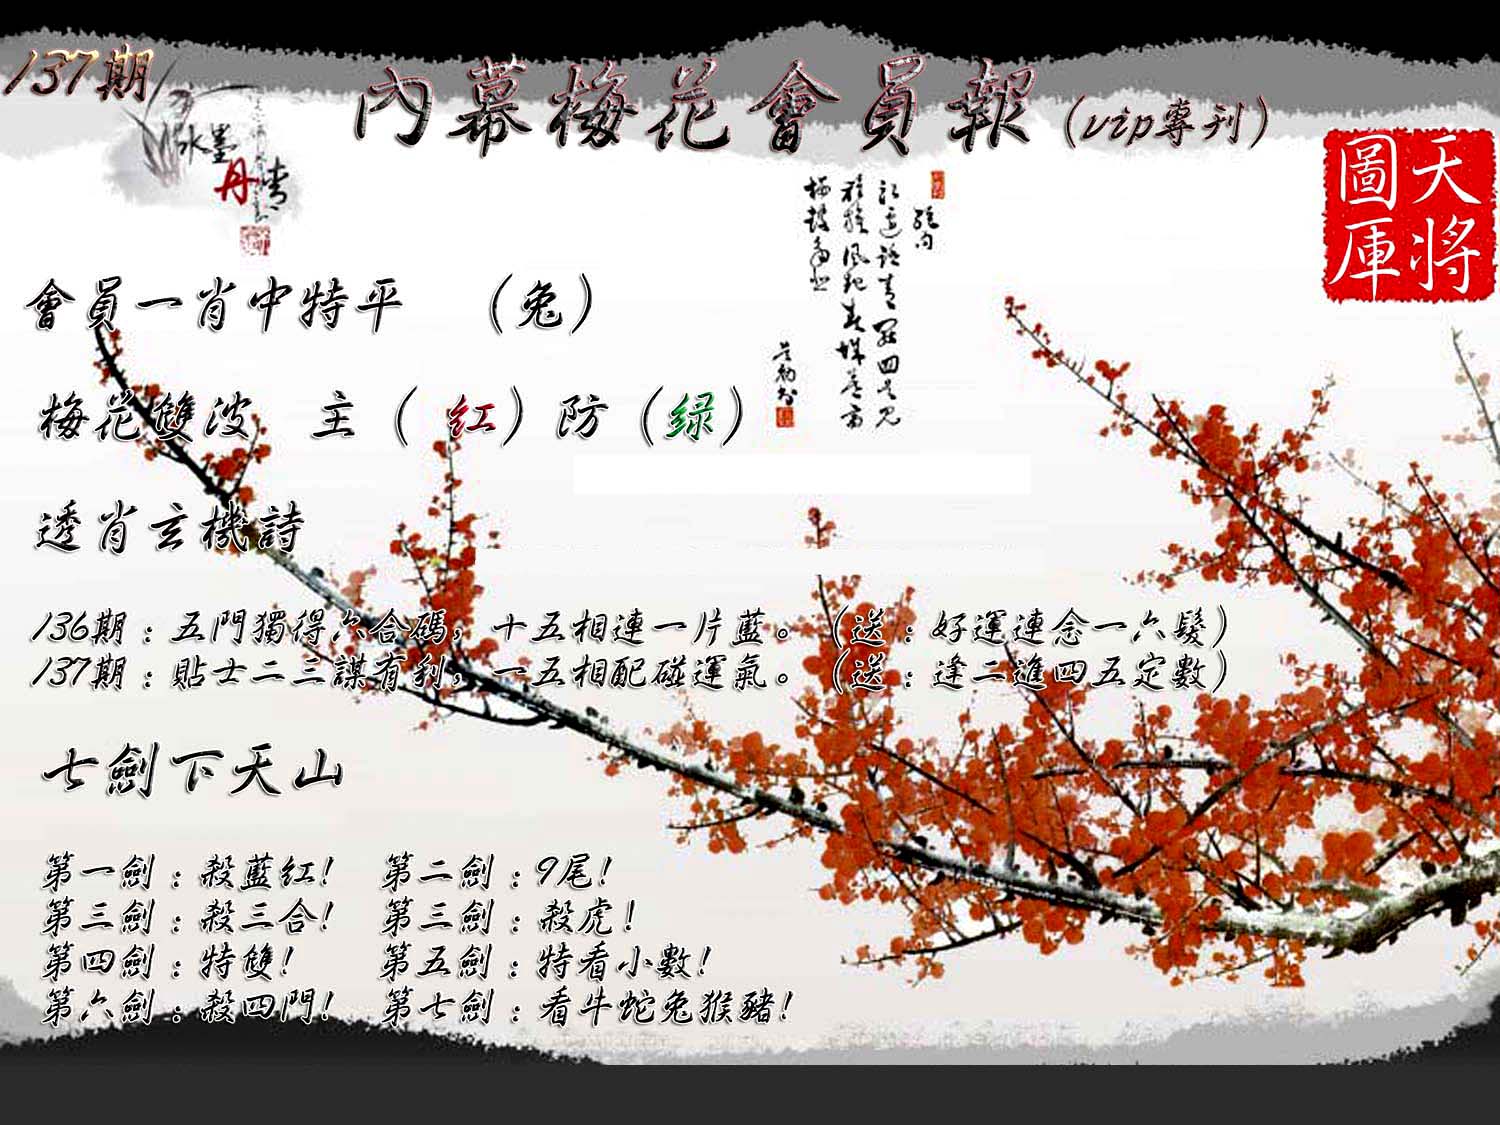 137期
內幕梅花會員報(vip專刊)
水墨
丹青
天將
圖庫
絕句
會員一肖中特平 (兔)
梅花雙波 主(紅)防(绿)
透肖玄機詩
136期:五門獨得六合碼,十五相連一片藍。(送:好運連念一六髮)
137期:貼士二三謀有利,一五相配碰運氣。(送:逢二進四五定數)
七劍下天山
第一劍:殺藍紅! 第二劍:9尾!
第三劍:殺三合! 第三劍:殺虎!
第四劍:特雙! 第五劍:特看小數!
第六劍:殺四門! 第七劍:看牛蛇兔猴豬!